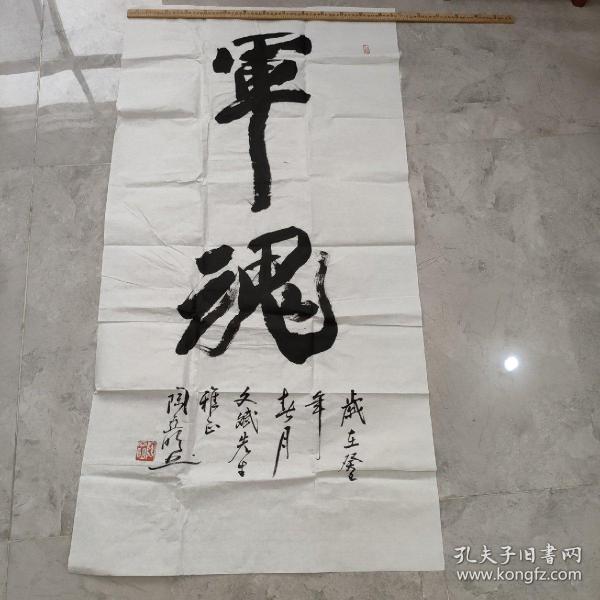 軍魂
歲在癸
年
春月
文斌先生
雅正
孔夫子旧书网
www.kongfz.com